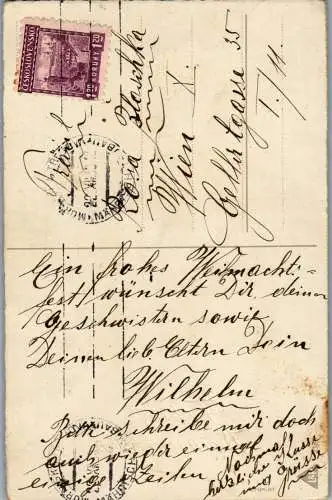 ČESKOSLOVENSKO
1.20
Rosa Blaschka
Wien X.
Gellertgasse 35
I./11.
Ein frohes Weihnachts-
fest wünscht Dir, deinen
Geschwistern sowie
Deinen lieb. Eltern Dein
Wilhelm
Bitte schreibe mir doch
auch wieder einmal
einige Zeilen
Nochmals
herzliche Küsse
und Grüsse